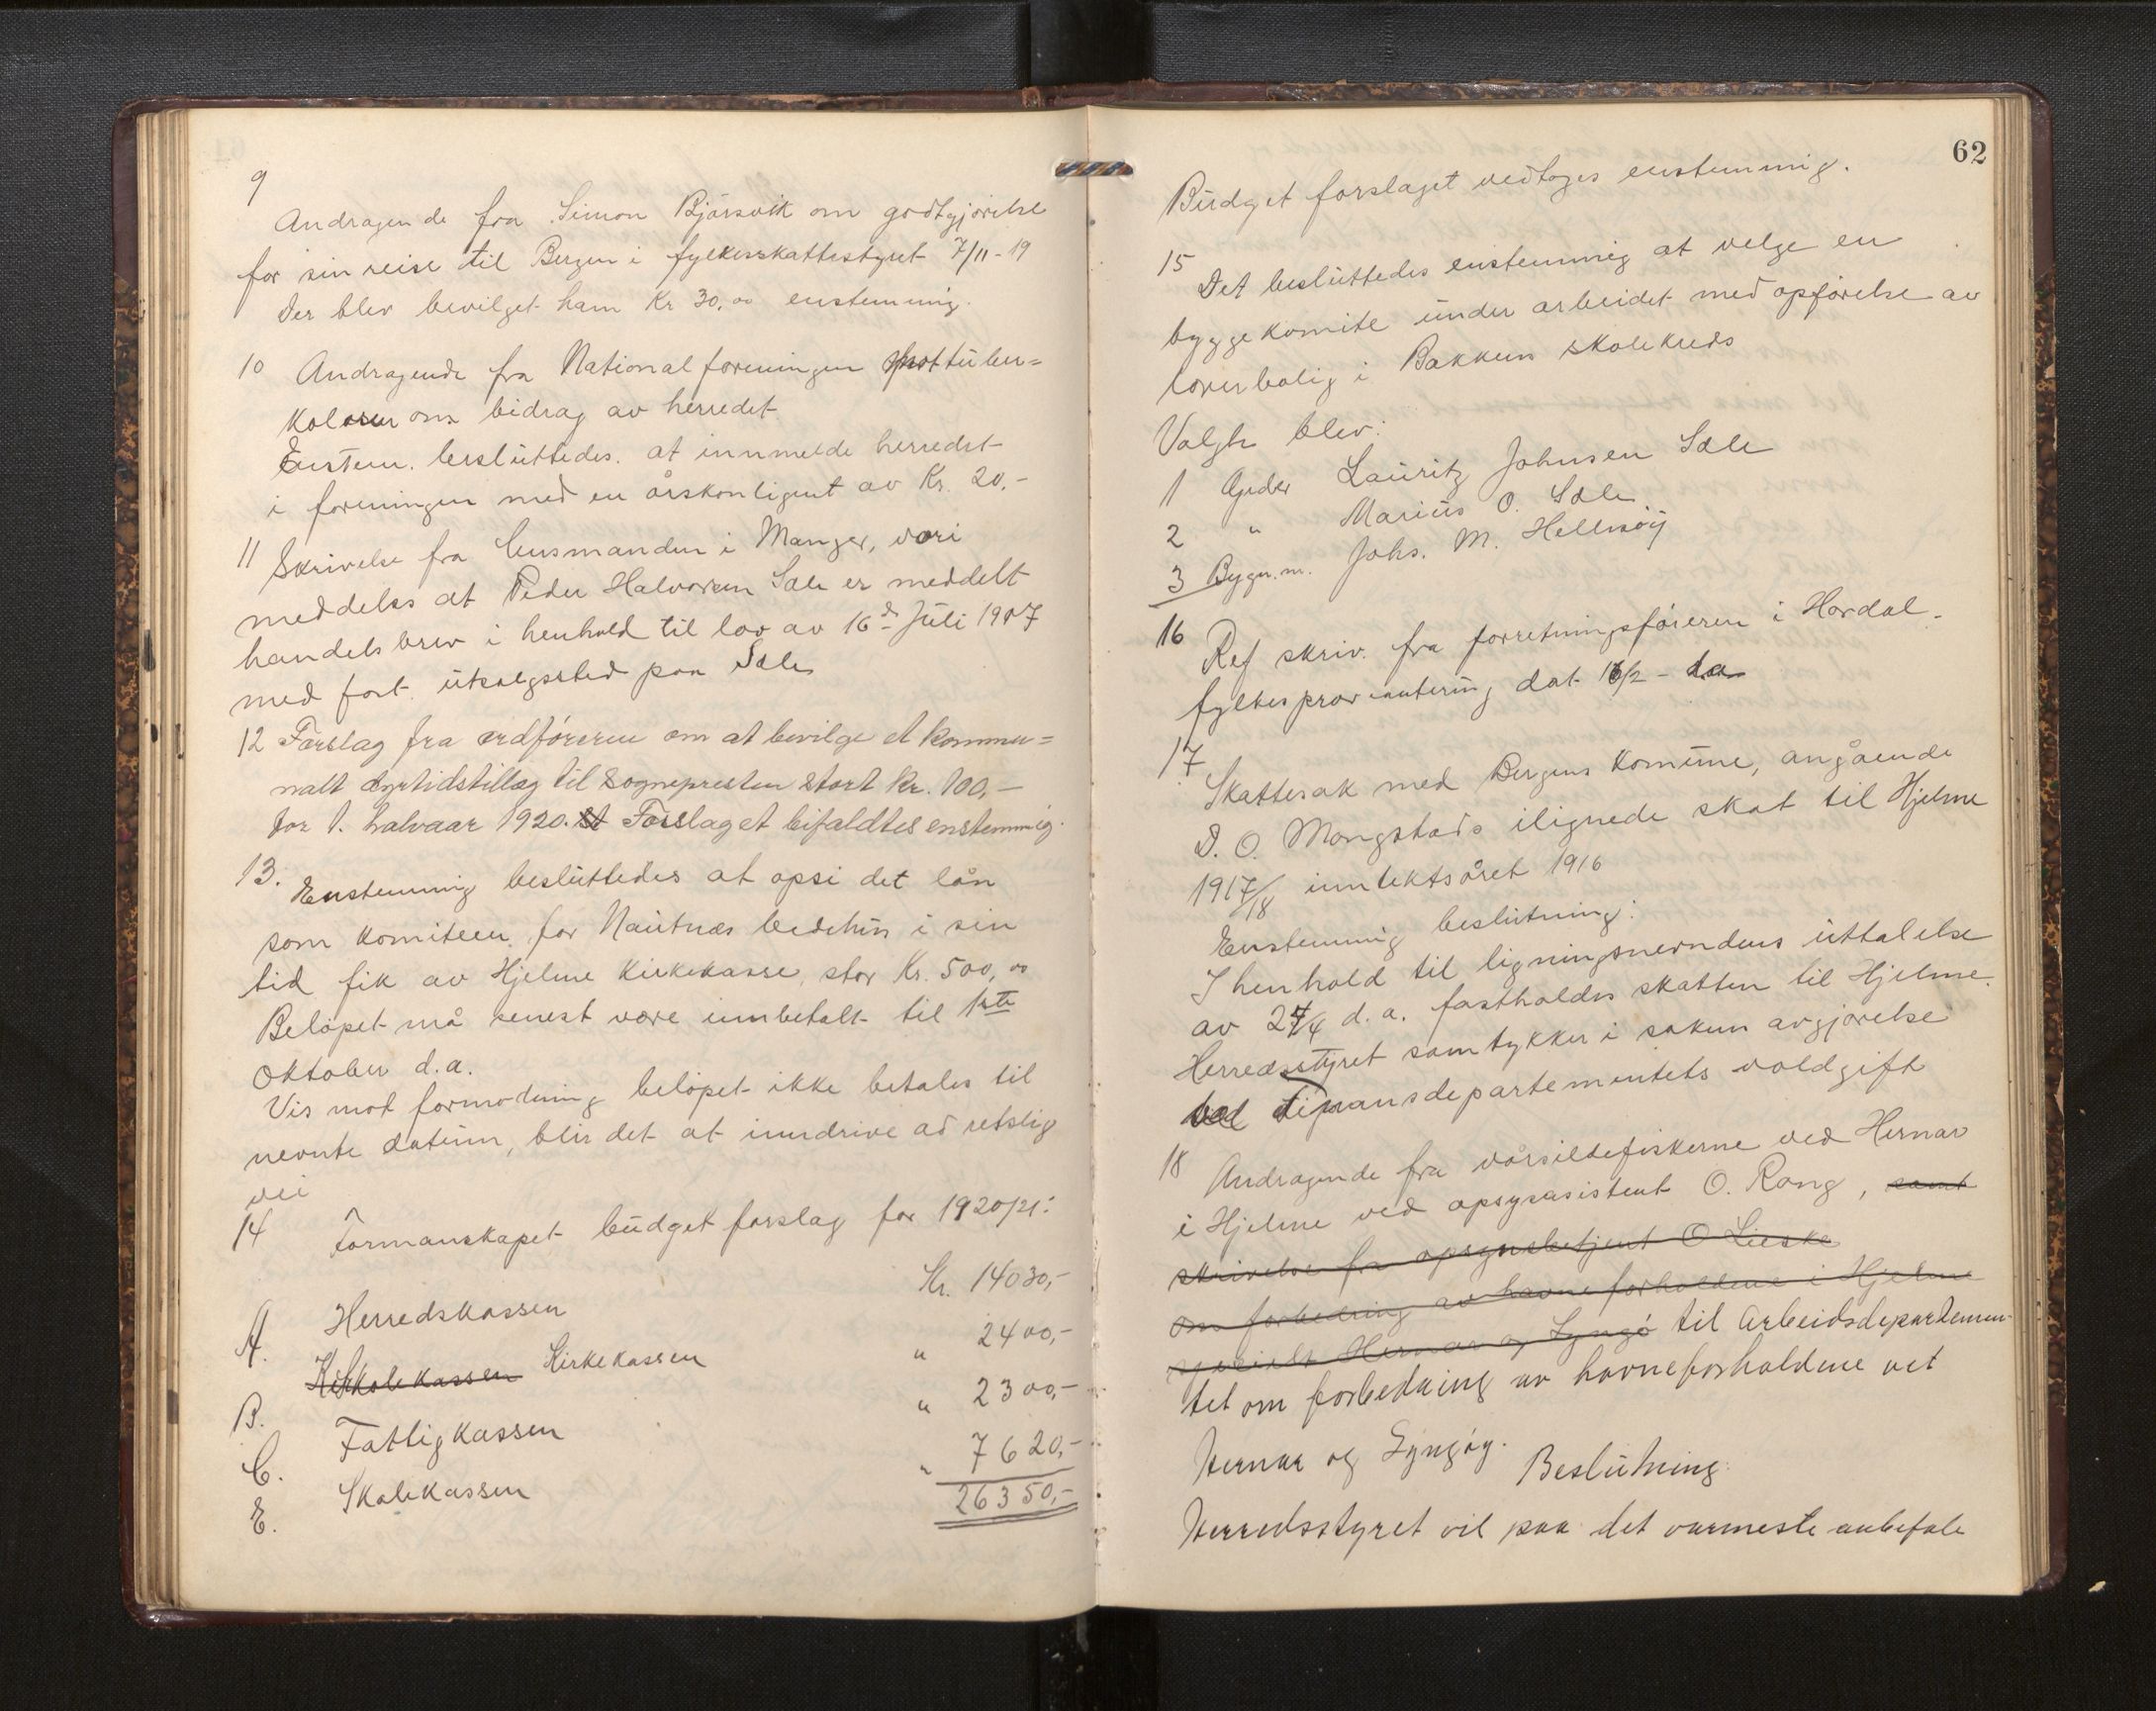 9
Andragende fra Simon Bjørsvik om godtgjørelse
for sin reise til Bergen i fylkesskattestyret 7/11-19
Der blev bevilget ham Kr 30,00 enstemmig.
10 Andragende fra Nationalforeningen mot tuber=
kolosen om bidrag av herredet
Enstem. besluttedes at innmelde herredet
i foreningen med en årskontigent av Kr. 20,-
11 Skrivelse fra lensmanden i Manger, vori
meddeles at Peder Halvorsen Sæle er meddelt
handelsbrev i henhold til lov av 16de Juli 1907
med fast utsalgssted paa Sæle
12 Forslag fra ordføreren om at bevilge et kommu=
nalt dyrtidstillæg til Sognepresten stort kr. 100,-
for 1. halvaar 1920. Forslaget bifaldtes enstemmig.
13. Enstemmig besluttedes at opsi det lån
som komiteen for Nautnes bedehus i sin
tid fik av Hjelme Kirkekasse, stor Kr. 500,00
Beløpet må senest være innbetalt til 1ste
Oktober d.a.
Vis mot formodning beløpet ikke betales til
nevnte datum, blir det at inndrive ad retslig
vei
14 Formanskapet budget forslag for 1920/21:
A. Herredskassen Kr. 14030,-
B. Skolekassen Kirkekassen " 2400,-
C. Fattigkassen " 2300,-
E. Skolekassen " 7620,-
26350,-
62
Budget forslaget vedtoges enstemmig.
15 Det besluttedes enstemmig at velge en
byggekomite under arbeidet med opførelse av
lærerbolig i Bakken skolekreds
Valgte blev:
1 Grdbr Lauritz Johnsen Sæle
2 " Marius O. Sæle
3 Bygn.m. Johs. M. Hellesøy
16
Ref skriv. fra forretningsføreren i Hordal-
fylkes proviantering dat 16/2 - d.a.
17
Skattesak med Bergens Komune, angående
D. O. Mongstads ilignede skat til Hjelme
1917/18 inntektsåret 1916
Enstemmig beslutning:
I henhold til ligningsnevndens uttalelse
av 24/4 d.a. fastholdes skatten til Hjelme.
Herredsstyret samtykker i sakens avgjørelse
ved Finansdepartementets voldgift
18 Andragende fra vårsildefiskerne ved Hernar
i Hjelme ved opsynsasistent O. Rong, samt
skrivelse fra opsynsbetjent O Lieske
om forbedring av havneforholdene i Hjelme
specielt Hernar og Lyngø til Arbeidsdepartemen-
tet om forbedring av havneforholdene vet
Hernar og Lyngøy. Beslutning
Herredsstyret vil paa det varmeste anbefale